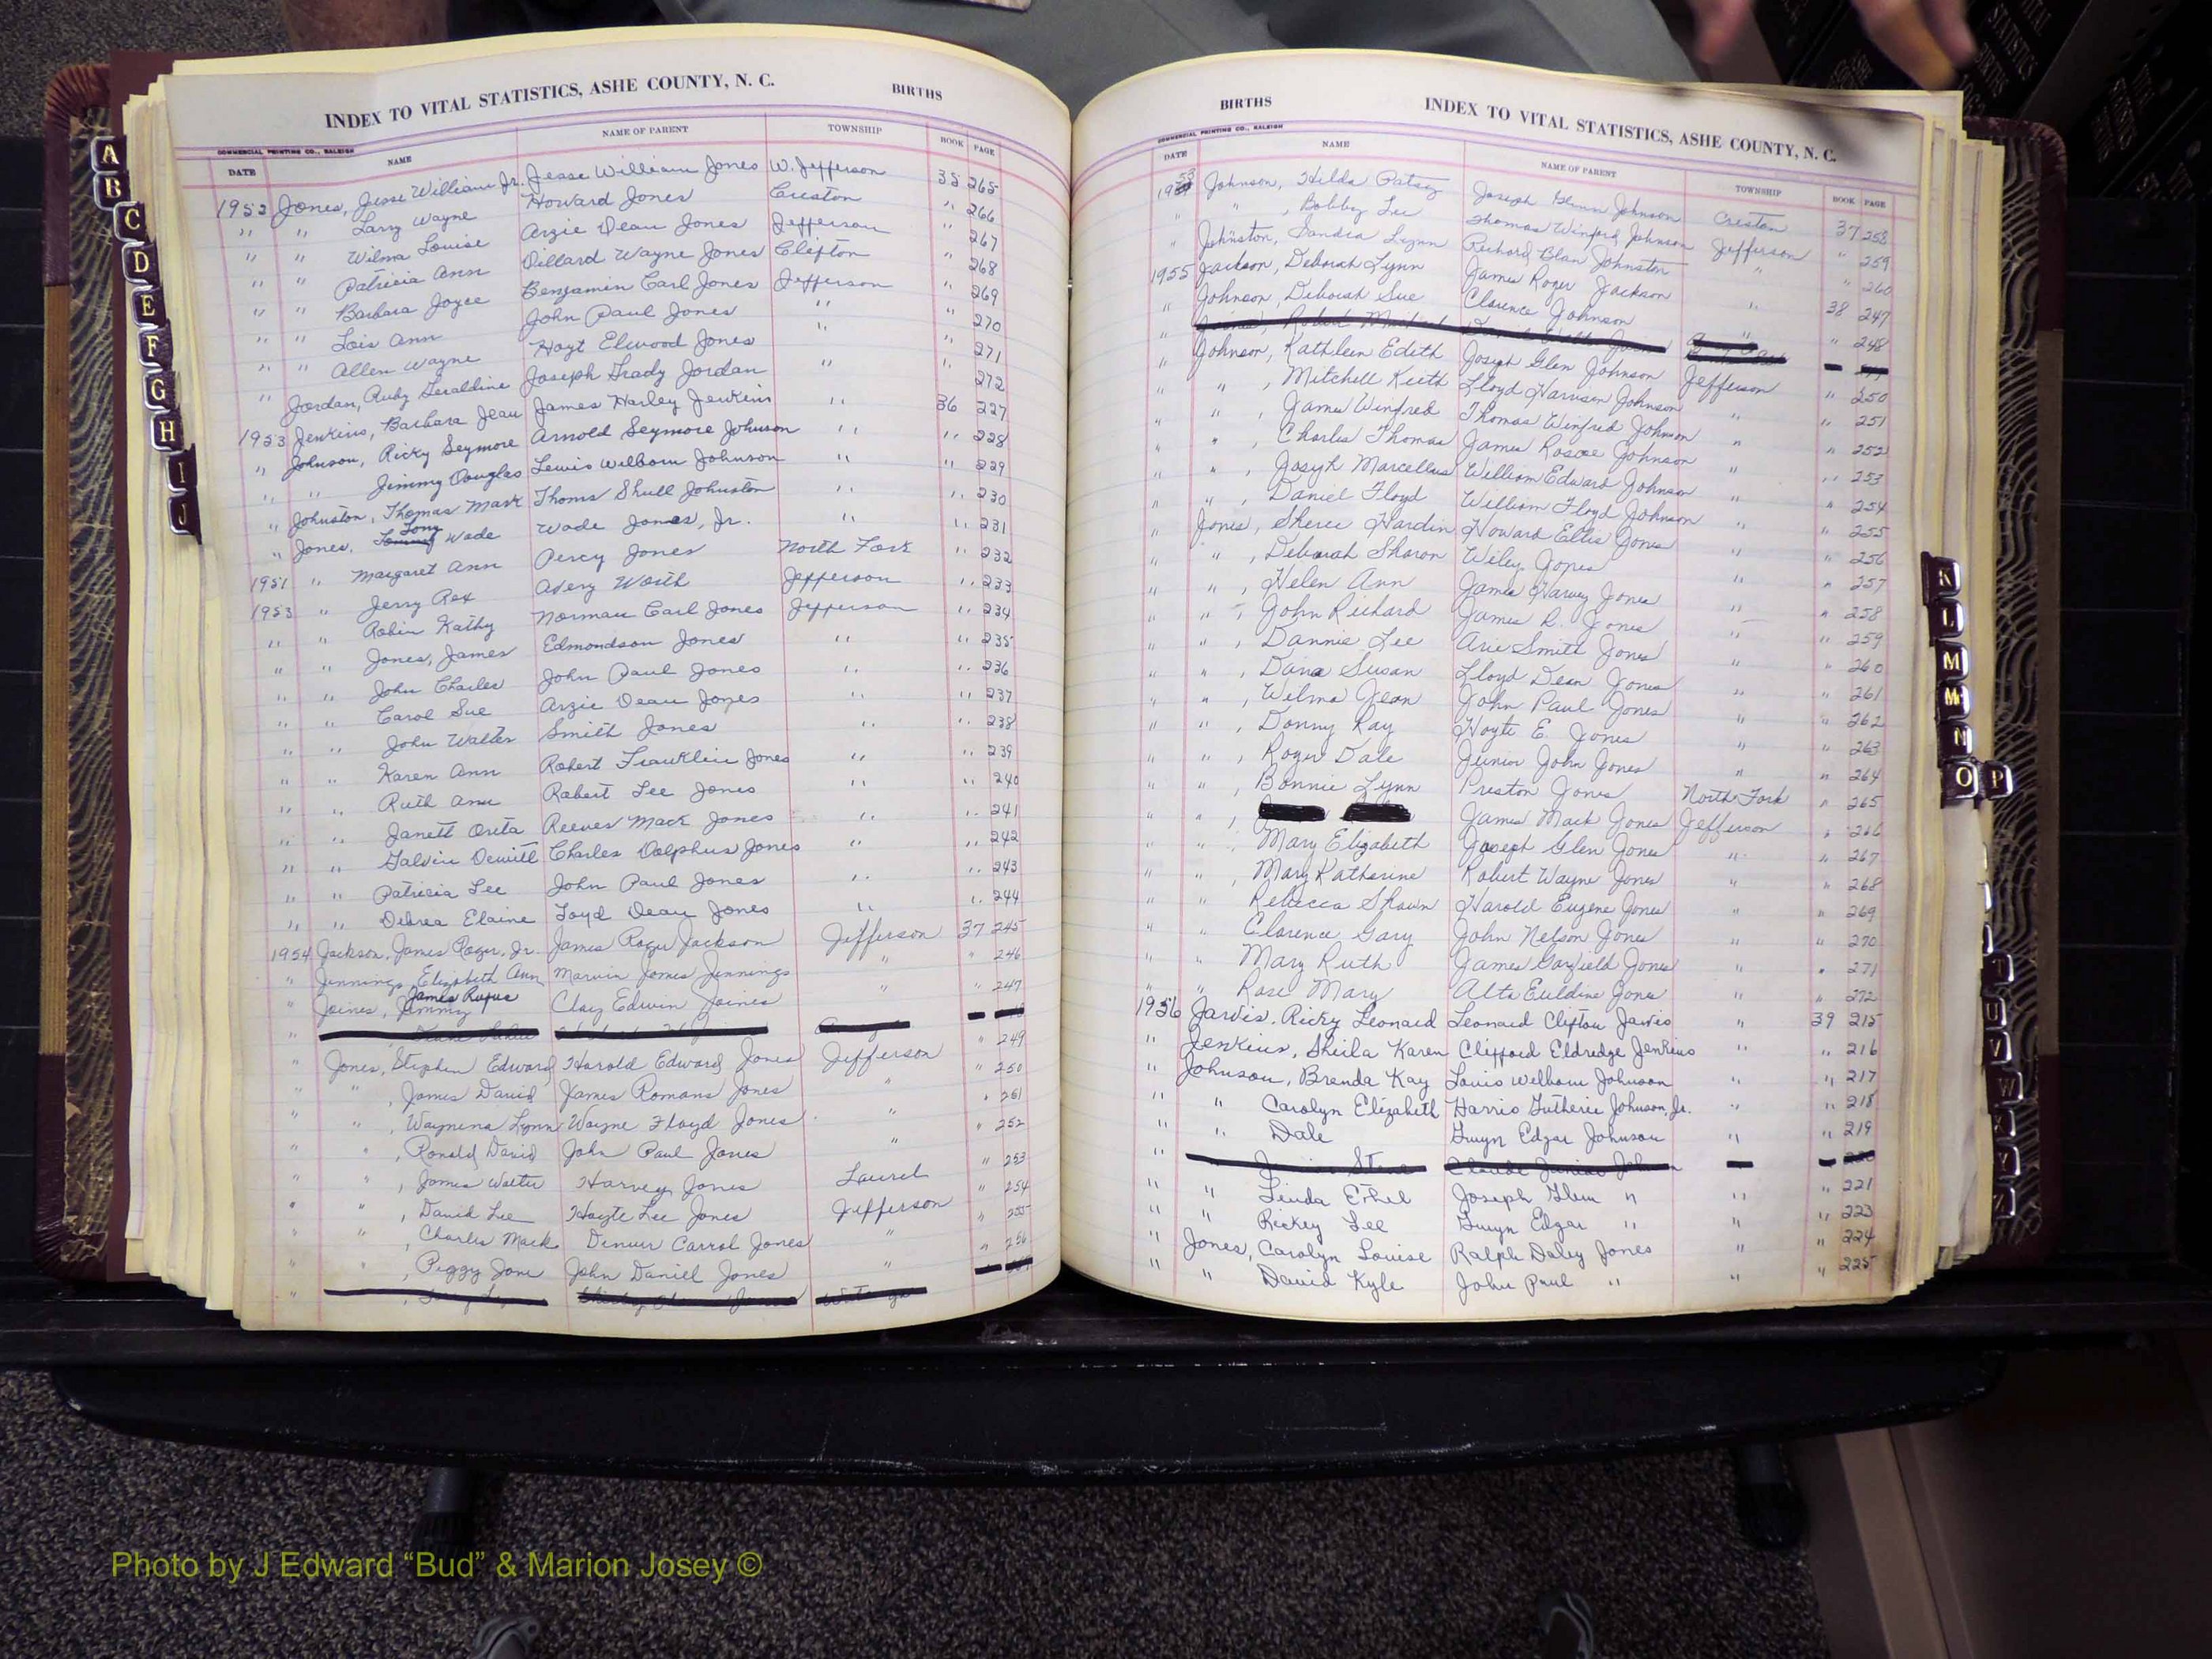 INDEX TO VITAL STATISTICS, ASHE COUNTY, N. C. BIRTHS
COMMERCIAL PRINTING CO., RALEIGH
DATE NAME NAME OF PARENT TOWNSHIP BOOK PAGE
1952 Jones, Jesse William Jr. Jesse William Jones W. Jefferson 35 265
" " Larry Wayne Howard Jones Creston " 266
" " Wilma Louise Arzie Dean Jones Jefferson " 267
" " Patricia Ann Dillard Wayne Jones Clifton " 268
" " Barbara Joyce Benjamin Carl Jones Jefferson " 269
" " Lois Ann John Paul Jones " " 270
" " Allen Wayne Hoyt Elwood Jones " " 271
" Jordan, Ruby Geraldine Joseph Grady Jordan " 272
1953 Jenkins, Barbara Jean James Harley Jenkins " 36 227
" Johnson, Ricky Seymore Arnold Seymore Johnson " " 228
" " Jimmy Douglas Lewis Wilborn Johnson " " 229
" Johnston, Thomas Mark Thoms Shull Johnston " " 230
" Jones, Tony Wade Wade Jones, Jr. " " 231
1951 " Margaret Ann Percy Jones North Fork " 232
1953 " Jerry Rex Avery Worth Jefferson " 233
" " Robin Kathy Norman Carl Jones Jefferson " 234
" " Jones, James Edmondson Jones " " 235
" " John Charles John Paul Jones " " 236
" " Carol Sue Arzie Dean Jones " " 237
" " John Walter Smith Jones " " 238
" " Karen Ann Robert Franklin Jones " " 239
" " Ruth Ann Robert Lee Jones " " 240
" " Janett Oreta Reeves Mack Jones " " 241
" " Galvin Dewitt Charles Dolphus Jones " " 242
" " Patricia Lee John Paul Jones " " 243
" " Debrea Elaine Loyd Dean Jones " " 244
1954 Jackson, James Roger, Jr. James Roger Jackson Jefferson 37 245
" Jennings, Elizabeth Ann Marvin James Jennings " " 246
" Joines, Jimmy James Rufus Clay Edwin Joines " " 247
" Jones, Stephen Edward Harold Edward Jones Jefferson " 249
" " , James David James Romans Jones " " 250
" " , Waynena Lynn Wayne Floyd Jones " " 251
" " , Ronald David John Paul Jones " " 252
" " , James Walter Harvey Jones Laurel " 253
" " , David Lee Hoyte Lee Jones Jefferson " 254
" " , Charles Mack Denver Carrol Jones " " 255
" " , Peggy Jane John Daniel Jones " " 256
BIRTHS INDEX TO VITAL STATISTICS, ASHE COUNTY, N. C.
COMMERCIAL PRINTING CO., RALEIGH
DATE NAME NAME OF PARENT TOWNSHIP BOOK PAGE
1953 Johnson, Hilda Patsy Joseph Glenn Johnson Creston 37 258
" " , Bobby Lee Thomas Winford Johnson Jefferson " 259
" Johnston, Sandra Lynn Richard Blan Johnston " " 260
1955 Jackson, Deborah Lynn James Roger Jackson " 38 247
" Johnson, Deborah Sue Clarence Johnson " " 248
" Johnson, Kathleen Edith Joseph Glen Johnson Jefferson " 250
" " , Mitchell Keith Lloyd Harrison Johnson " " 251
" " , James Winfred Thomas Winfred Johnson " " 252
" " , Charles Thomas James Roscoe Johnson " " 253
" " , Joseph Marcellus William Edward Johnson " " 254
" " Daniel Floyd William Floyd Johnson " " 255
" Jones, Sheree Hardin Howard Ellis Jones " " 256
" " , Deborah Sharon Wiley Jones " " 257
" " , Helen Ann James Harvey Jones " " 258
" " , John Richard James R. Jones " " 259
" " , Dannie Lee Arie Smith Jones " " 260
" " , Dana Susan Lloyd Dean Jones " " 261
" " , Wilma Jean John Paul Jones " " 262
" " , Donny Ray Hoyte E. Jones " " 263
" " , Roger Dale Junior John Jones " " 264
" " , Bonnie Lynn Preston Jones North Fork " 265
" " , James Mack Jones Jefferson " 266
" " , Mary Elizabeth Joseph Glen Jones " " 267
" " , Mary Katherine Robert Wayne Jones " " 268
" " Rebecca Shawn Harold Eugene Jones " " 269
" " Clarence Gary John Nelson Jones " " 270
" " Mary Ruth James Garfield Jones " " 271
" " Rose Mary Alta Euldine Jones " " 272
1956 Jarvis, Ricky Leonard Leonard Clifton Jarvis " 39 215
" Jenkins, Sheila Karen Clifford Eldredge Jenkins " " 216
" Johnson, Brenda Kay Louis Welborn Johnson " " 217
" " Carolyn Elizabeth Harris Gutherie Johnson, Jr. " " 218
" " Dale Gwyn Edgar Johnson " " 219
" " Linda Ethel Joseph Glen " " " 221
" " Rickey Lee Gwyn Edgar " " " 223
" Jones, Carolyn Louise Ralph Daley Jones " " 224
" " David Kyle John Paul " " " 225
A
B
C
D
E
F
G
H
I
J
K
L
M
Mc
N
O P
T
U
V
W
X
Y
Z
Photo by J Edward “Bud” & Marion Josey ©